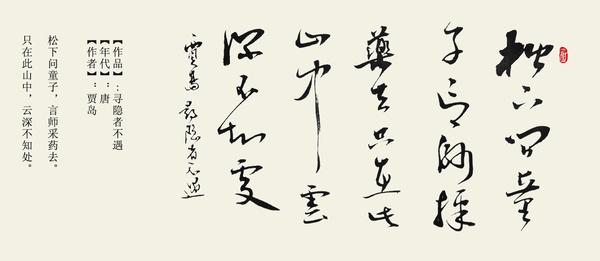 松下問童
子言師採
藥去只在此
山中雲
深不知處
賈島尋隐者不遇
【作品】：寻隐者不遇
【年代】：唐
【作者】：贾岛
松下问童子，言师采药去。
只在此山中，云深不知处。